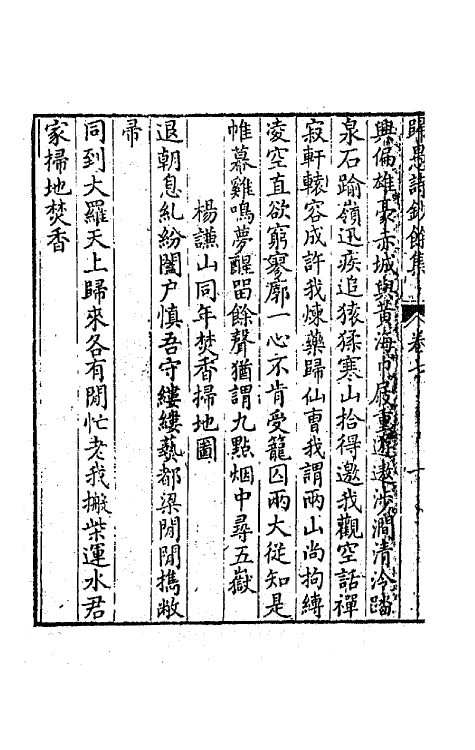 歸愚詩鈔餘集 卷七 十
興偏雄豪赤城與黃海巾屐重遊遨涉澗清冷踏
泉石踰嶺迅疾追猿猱寒山拾得邀我觀空話禪
寂軒轅容成許我煉藥歸仙曹我謂兩山尚拘縛
凌空直欲窮寥廓一心不肯受籠囚兩大從知是
帷幕雞鳴夢醒留餘聲猶謂九點烟中尋五嶽
楊謙山同年焚香掃地圖
退朝息糺紛闔户慎吾守縷縷爇都梁閒閒擕敝
帚
同到大羅天上歸來各有閒忙老我搬柴運水君
家掃地焚香